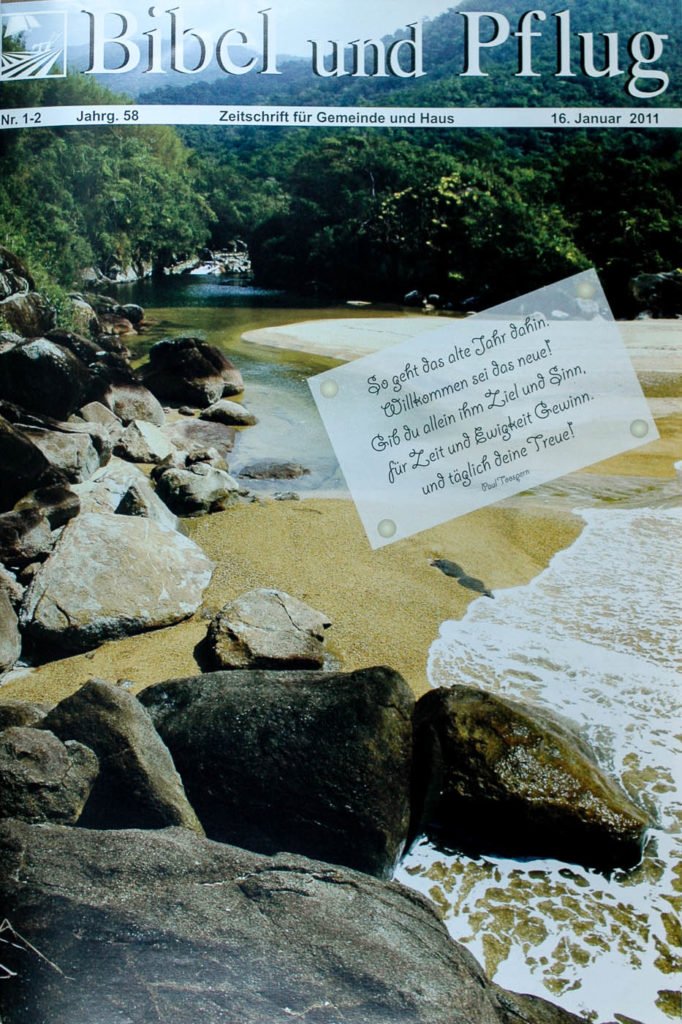 Bibel und Pflug
Nr. 1-2 Jahrg. 58 Zeitschrift für Gemeinde und Haus 16. Januar 2011
So geht das alte Jahr dahin.
Willkommen sei das neue!
Gib du allein ihm Ziel und Sinn,
für Zeit und Ewigkeit Gewinn.
und täglich deine Treue!
Paul Toaspern